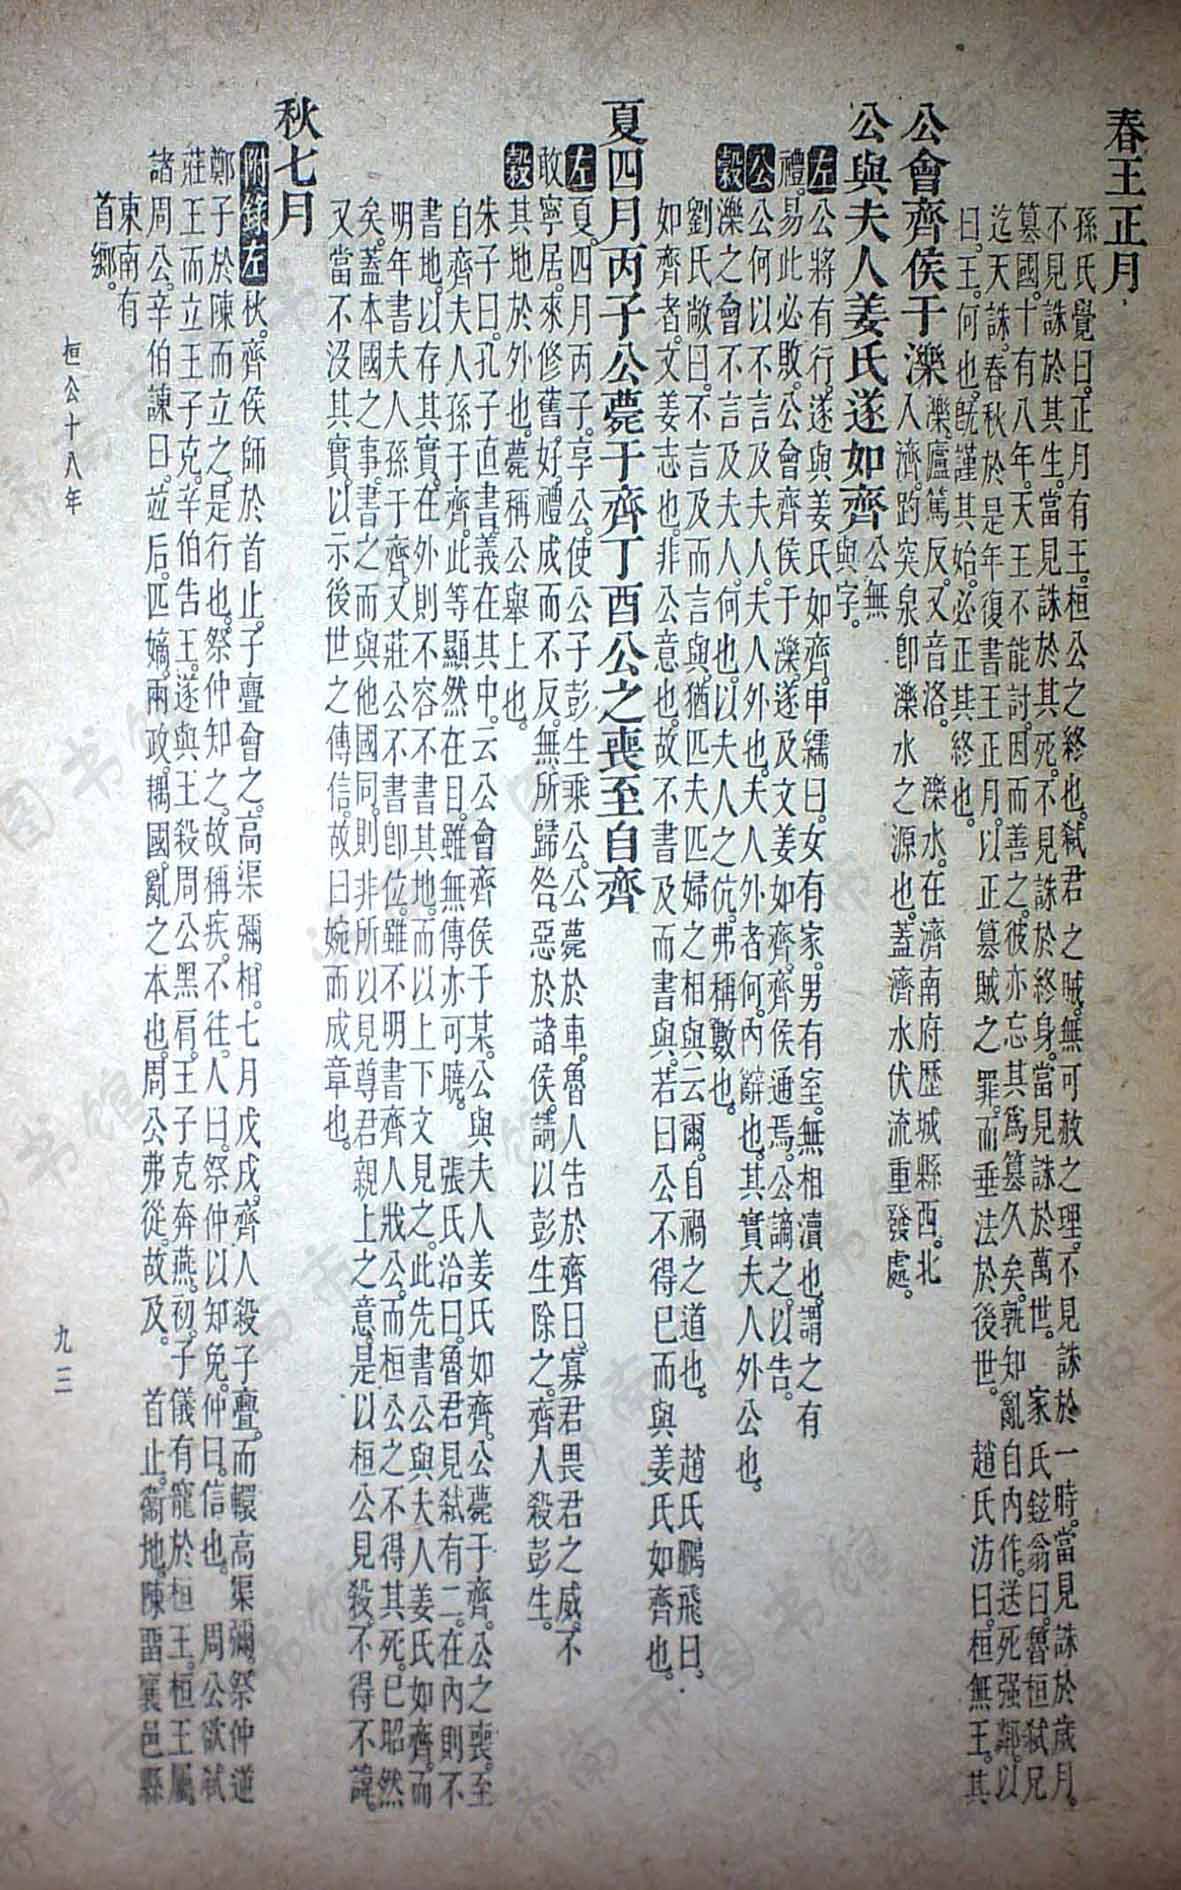 春王正月
孫氏覺曰。正月有王。桓公之終也。弒君之賊。無可赦之理。不見誅於一時。當見誅於歲月。
不見誅於其生。當見誅於其死。不見誅於終身。當見誅於萬世。　家氏鉉翁曰。魯桓弒兄
篡國。十有八年。天王不能討。因而善之。彼亦忘其爲篡久矣。孰知亂自內作。送死强鄰。以
迄天誅。春秋於是年復書王正月。以正篡賊之罪。而垂法於後世。　趙氏汸曰。桓無王。其
曰。王。何也。旣謹其始。必正其終也。
公會齊侯于濼
濼。盧篤反。又音洛。　濼水。在濟南府歷城縣西。北
入濟。趵突泉卽濼水之源也。蓋濟水伏流重發處。
公與夫人姜氏遂如齊
公無
與字。
左公將有行。遂與姜氏如齊。申繻曰。女有家。男有室。無相瀆也。謂之有
禮。易此必敗。公會齊侯于濼。遂及文姜如齊。齊侯通焉。公謫之。以告。
公公何以不言及夫人。夫人外也。夫人外者何。內辭也。其實夫人外公也。
穀濼之會不言及夫人。何也。以夫人之伉。弗稱數也。
劉氏敞曰。不言及而言與。猶匹夫匹婦之相與云爾。自禍之道也。　趙氏鵬飛曰。
如齊者。文姜志也。非公意也。故不書及而書與。若曰公不得已而與姜氏如齊也。
夏四月丙子公薨于齊丁酉公之喪至自齊
左夏。四月丙子。享公。使公子彭生乘公。公薨於車。魯人告於齊曰。寡君畏君之威。不
敢寧居。來修舊好。禮成而不反。無所歸咎。惡於諸侯。請以彭生除之。齊人殺彭生。
穀其地於外也。薨稱公。舉上也。
朱子曰。孔子直書。義在其中。云公會齊侯于某。公與夫人姜氏如齊。公薨于齊。公之喪。至
自齊。夫人孫于齊。此等顯然在目。雖無傳亦可曉。　張氏洽曰。魯君見弒有二。在內則不
書地。以存其實。在外則不容不書其地。而以上下文見之。此先書公與夫人姜氏如齊。而
明年書夫人孫于齊。又莊公不書卽位。雖不明書齊人戕公。而桓公之不得其死。已昭然
矣。蓋本國之事。書之而與他國同。則非所以見尊君親上之意。是以桓公見殺。不得不諱。
又當不沒其實。以示後世之傳信。故曰婉而成章也。
秋七月
附錄左秋。齊侯師於首止。子亹會之。高渠彌相。七月戊戌。齊人殺子亹。而轘高渠彌。祭仲逆
鄭子於陳而立之。是行也。祭仲知之。故稱疾。不往。人曰。祭仲以知免。仲曰。信也。　周公欲弒
莊王而立王子克。辛伯告王。遂與王殺周公黑肩。王子克奔燕。初。子儀有寵於桓王。桓王屬
諸周公。辛伯諫曰。竝后。匹嫡。兩政。耦國。亂之本也。周公弗從。故及。　首止。衞地。陳留襄邑縣
東南有
首鄉。
桓公十八年
九三